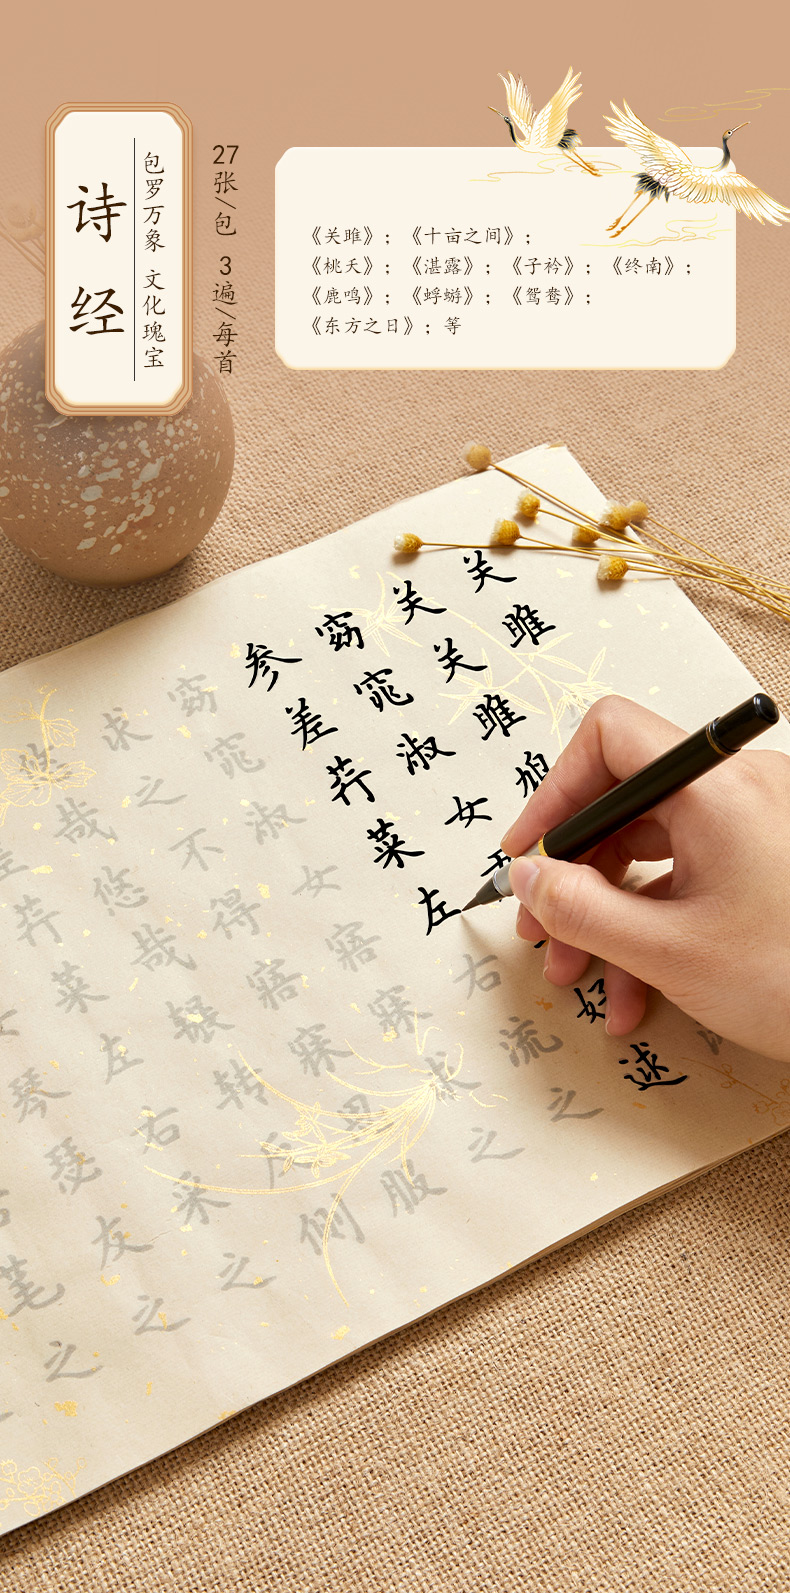 诗经
包罗万象 文化瑰宝
27张/包 3遍/每首
《关雎》;《十亩之间》;
《桃夭》;《湛露》;《子衿》;《终南》;
《鹿鸣》;《蜉蝣》;《鸳鸯》;
《东方之日》;等
关雎
关关雎鸠
窈窕淑女好逑
参差荇菜左右流之
窈窕淑女寤寐求之
求之不得寤寐思服
悠哉悠哉辗转反侧
差荇菜左右采之
琴瑟友之
之